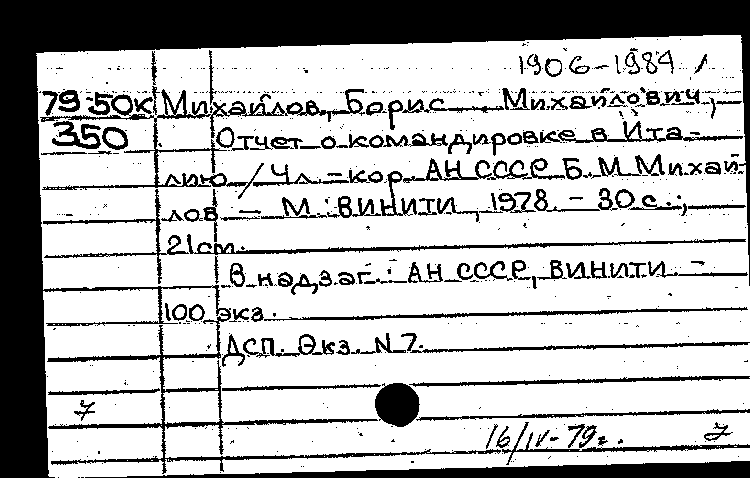 1906-1984
79-50к Михайлов, Борис Михайлович,
350 Отчет о командировке в Ита-
лию / Чл.-кор. АН СССР Б. М. Михай-
лов. - М. : ВИНИТИ, 1978. - 30 с. ;
21 см.
В надзаг.: АН СССР, ВИНИТИ. -
100 экз.
ДСП. Экз. N 7.
7
16/IV-79г. 7